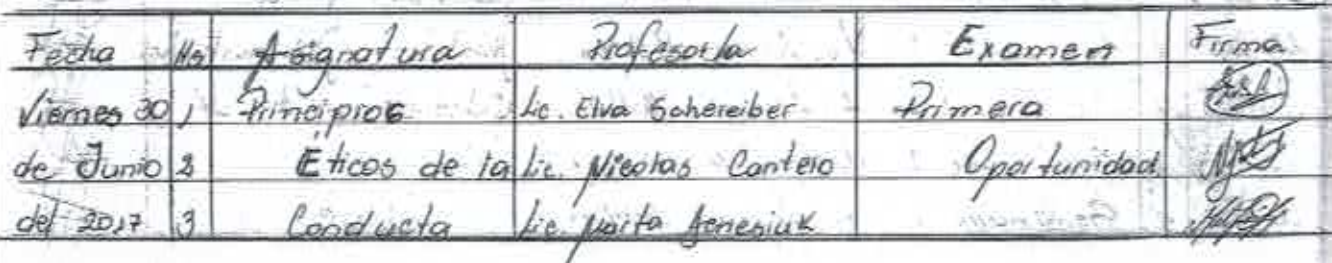 Fecha Hs Asignatura Profesor/a Examen Firma
Viernes 30 1 Principios Lic. Elva Schereiber Primera
de Junio 2 Éticos de la Lic. Nicolas Cantero Oportunidad
del 2017 3 Conducta Lic. Marta